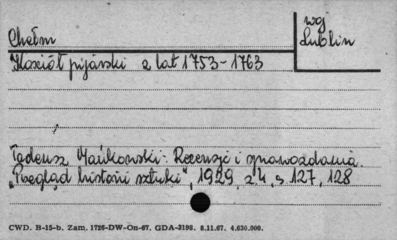 Chełm
wg
Lublin
Kościół pijarski z lat 1753-1763
Tadeusz Mańkowski: Recenzje i sprawozdania.
„Przegląd historii sztuki", 1929, z 4, s 127, 128
CWD. B-15-b. Zam. 1726-DW-On-67. GDA-2198. 8.11.67. 4.630.000.